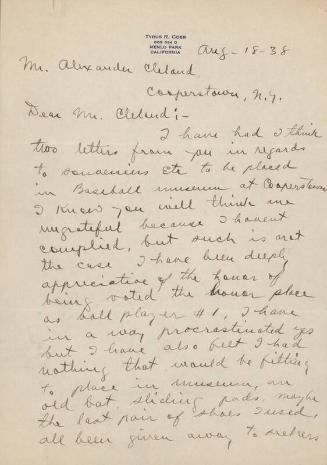 TYRUS R. COBB
MENLO PARK
CALIFORNIA
Aug - 18 - 38
Mr. Alexander Cleland
Cooperstown, N.Y.
Dear Mr. Cleland;-
I have had I think
two letters from you in regards
to souveniers etc to be placed
in Baseball museum at Cooperstown
I know you will think me
ungrateful because I havent
complied, but such is not
the case I have been deeply
appreciative of the honor of
being voted the honor place
as ball player #1, I have
in a way procrastinated yes
but I have also felt I had
nothing that would be fitting
to place in museum, an
old bat, sliding pads, maybe
the last pair of shoes I used,
all been given away to seekers